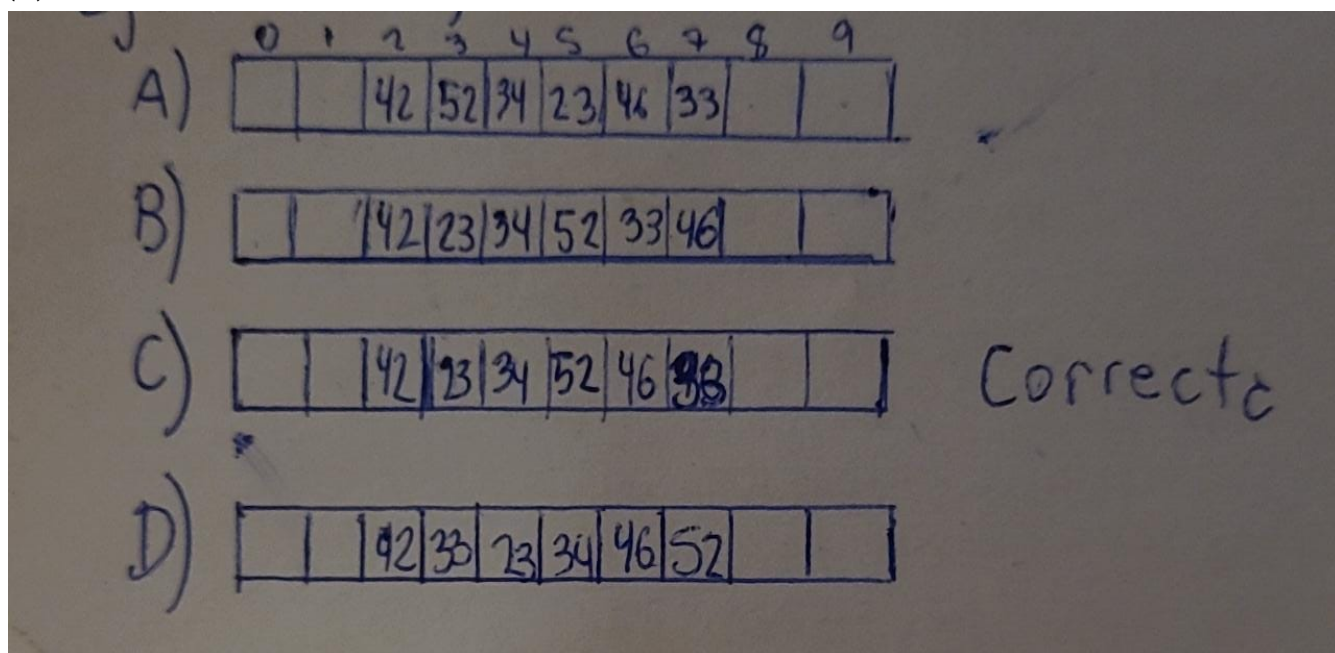 0 1 2 3 4 5 6 7 8 9
A) 42 52 34 23 46 33
B) 42 23 34 52 33 46
C) 42 23 34 52 46 33 Correcta
D) 42 33 23 34 46 52